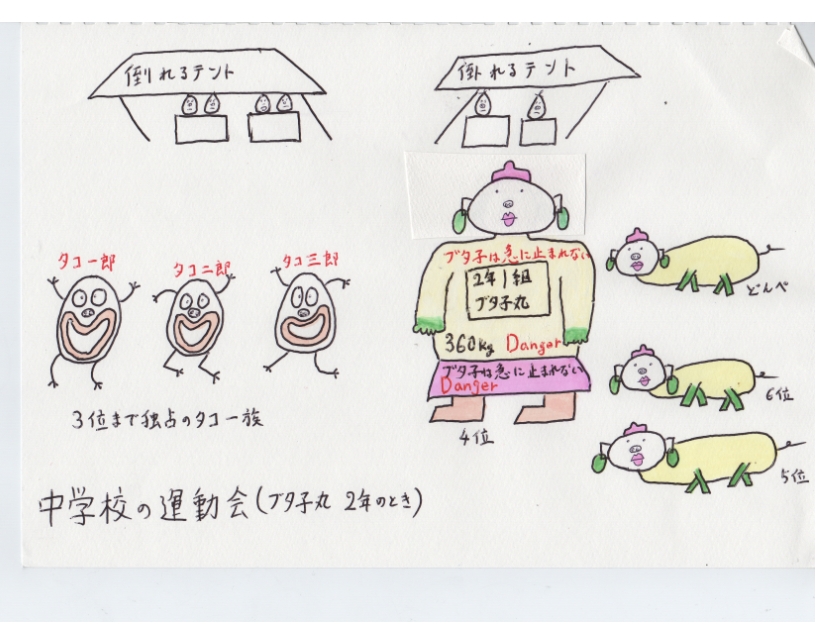 倒れるテント
倒れるテント
タコ一郎
タコ二郎
タコ三郎
3位まで独占のタコ一族
ブタ子は急に止まれない
2年1組
ブタ子丸
360kg Danger
ブタ子は急に止まれない
Danger
4位
どんべ
6位
5位
中学校の運動会(ブタ子丸 2年のとき)